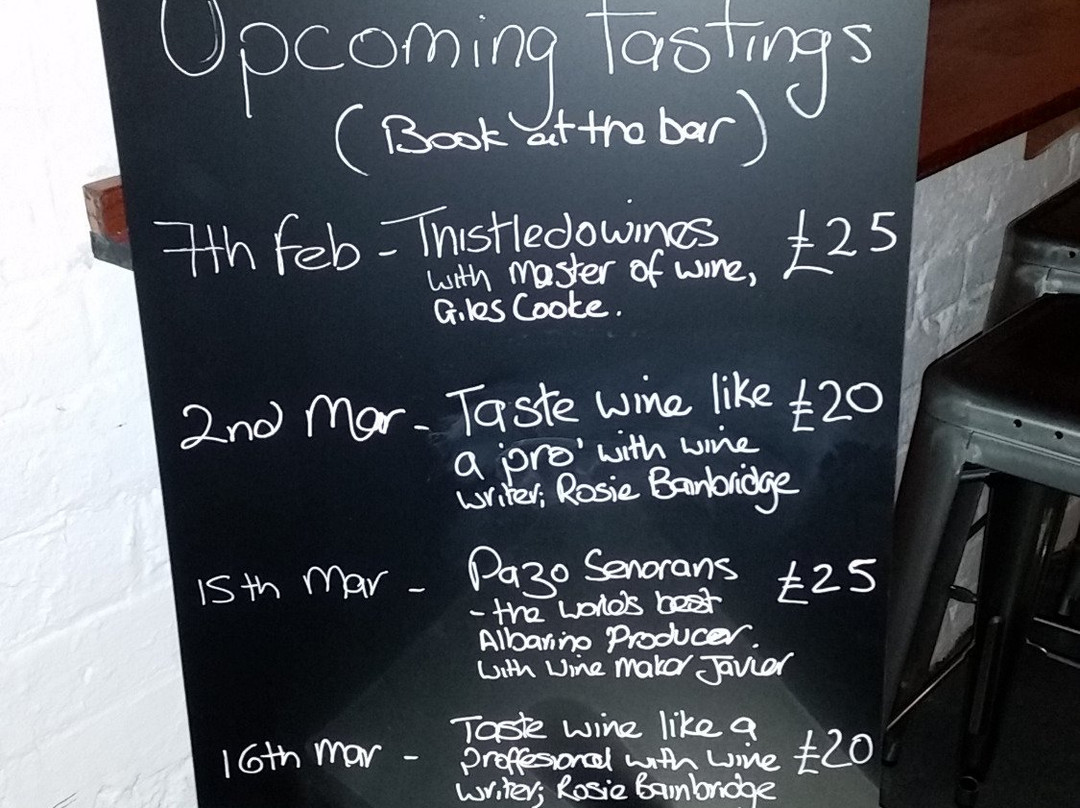 Upcoming Tastings
(Book at the bar)
7th Feb - Thistledowines £25
with Master of wine,
Giles Cooke.
2nd Mar - Taste wine like £20
a 'pro' with wine
writer; Rosie Bainbridge
15th Mar - Pazo Senorans £25
- the worlds best
Albarino Producer.
with Wine Maker Javier
16th Mar - Taste wine like a
proffesional with wine £20
writer; Rosie Bainbridge